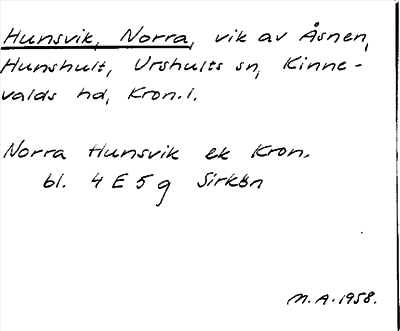 Hunsvik, Norra, vik av Åsnen,
Hunshult, Urshults sn, Kinne-
valds hd, Kron.l.
Norra Hunsvik ek Kron.
bl. 4 E 5 g Sirkön
M.A. 1958.